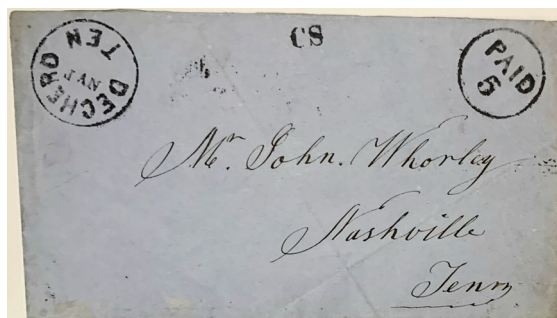 DECHERD TEN
JAN
CS
PAID
5
Mr. John. Whorley
Nashville
Tenn